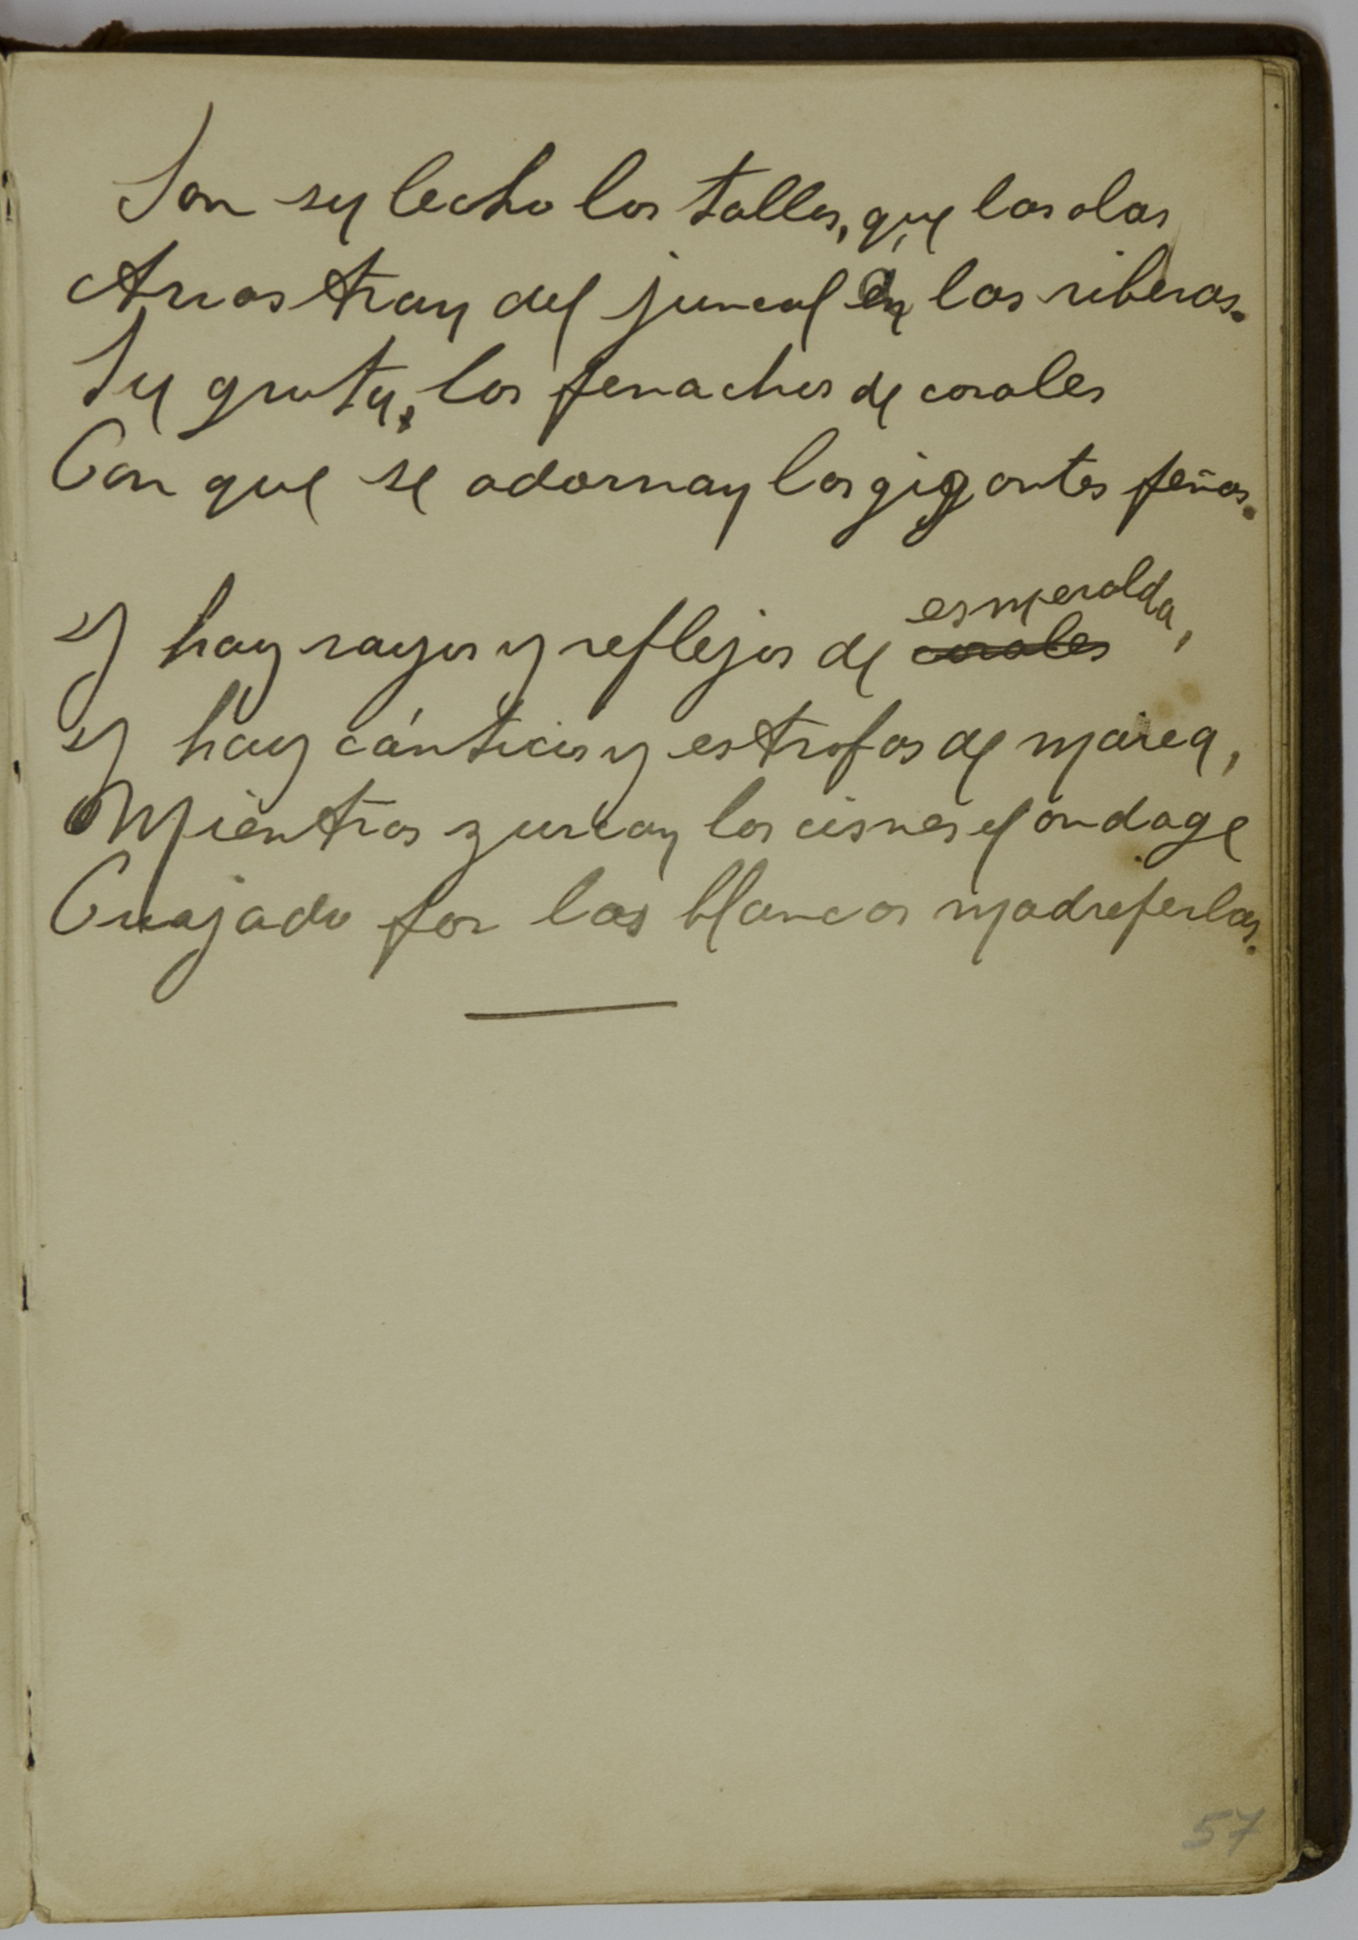 Son su lecho los tallos, que las olas
Arrastran del juncal en las riberas.
Su gruta, los penachos de corales
Con que se adornan las gigantes peñas.
Y hay rayos y reflejos de corales esmeralda,
Y hay cánticos y estrofas de marea,
Mientras zurcan los cisnes el ondage
Cuajado por las blancas madreperlas.
57